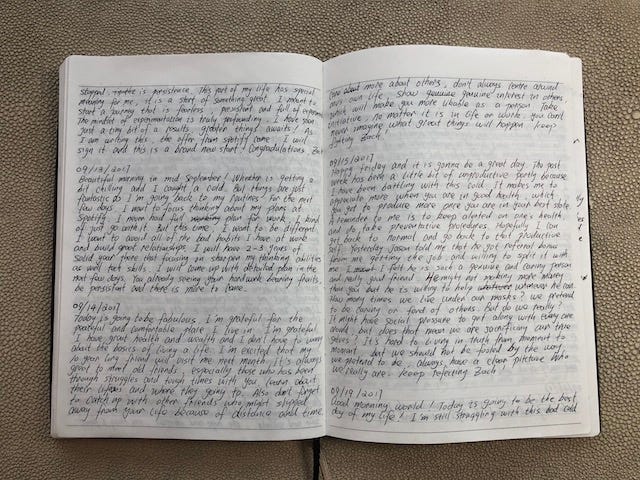 stopped. is persistence. This part of my life has special
meaning for me, it is a start of something great. I meant to
start a journey that is fearless, persistent and full of experiments.
The mindset of experimentation is truly profounding. I have seen
just a tiny bit of a results, greater things awaits! As
I am writing this, the offer from spotify came. I will
sign it and this is a brand new start! Congradulations, Zach
09/13/2017
Beautiful morning in mid September! Wheather is getting a
bit chilling and I caught a cold. But things are just
fantastic as I'm going back to my routines. For the next
few days, I want to focus thinking about my plans at
Spotify. I never had full plan for work, I kind
of just go with it. But this time, I want to be different.
I want to avoid all of the bad habits I have at work
and build good relationships. I will have 2-3 years of
solid goal there that focusing on sharpen my thinking abilities
as well tech skills. I will come up with detailed plan in the
next few days. You already seeing your hardwork bearing fruits,
be persistent and there is more to come.
09/14/2017
Today is going to be fabulous. I'm grateful for the
peaceful and comfortable place I live in. I'm grateful
I have great health and wealth and I don't have to worry
about the basics of living a life. I'm excited that my
10 year long friend will visit me next month, it's always
great to meet old friends, especially those who has been
through struggles and tough times with you, learn about
their lifes and where they going to. Also don't forget
to catch up with other friends who might slipped
away from your life because of distance and time.
more about others, don't always centre around
one's own life. Show genuine interest in others
which will make you more likable as a person. Take
initiative, no matter it is in life or work, you can't
never imaging what great things will happen. keep
fighting Zach.
09/15/2017
Happy Friday and it is gonna be a great day. The past
week has been a little bit of unproductive partly because
I have been battling with this cold. It makes me to
appreciate more when you are in good health, which
you get to produce more once you are on your best state.
A reminder to me is to keep on one's health
and do take preventative procedures. Hopefully I can
get back to normal and go back to the productive
self. Yesterday Jason told me that he got referral bonus
from me getting the job, and willing to split it with
me. I felt he is such a genuine and caring person
and really good friend. He might not making more money
than you but he is willing to help whenever he can.
How many times we live under our masks? we pretend
to be caring or fond of others. But do we really?
It might have social pressure to get along with every one
around, but does that mean we are sacrificing our true
selves? It's hard to living in truth from moment to
moment, but we should not be fooled by the one
we pretend to be. Always have a clear picture who
we really are. keep reflecting Zach!
09/19/2017
Good morning world! Today is going to be the best
day of my life! I'm still struggling with this bad cold